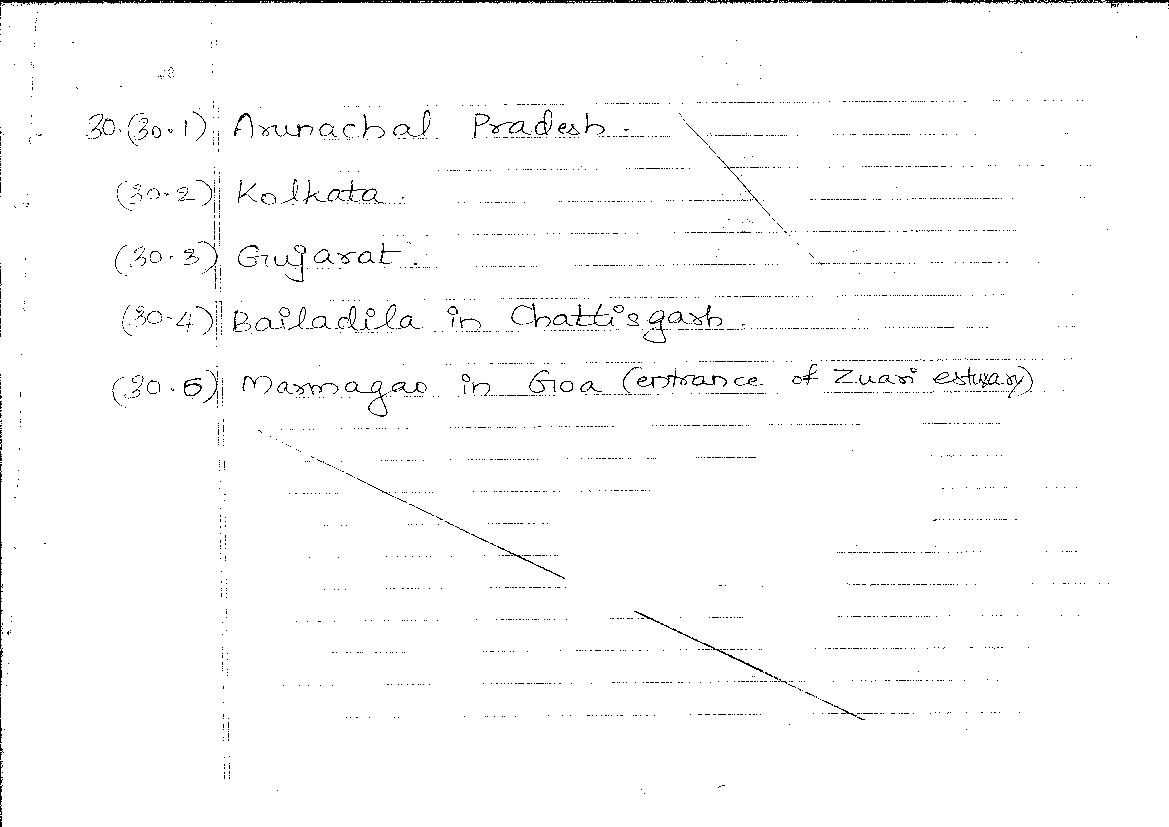 30.(30.1) Arunachal Pradesh.
(30.2) Kolkata.
(30.3) Gujarat.
(30.4) Bailadila in Chattisgarh.
(30.5) Marmagao in Goa (entrance of Zuari estuary)